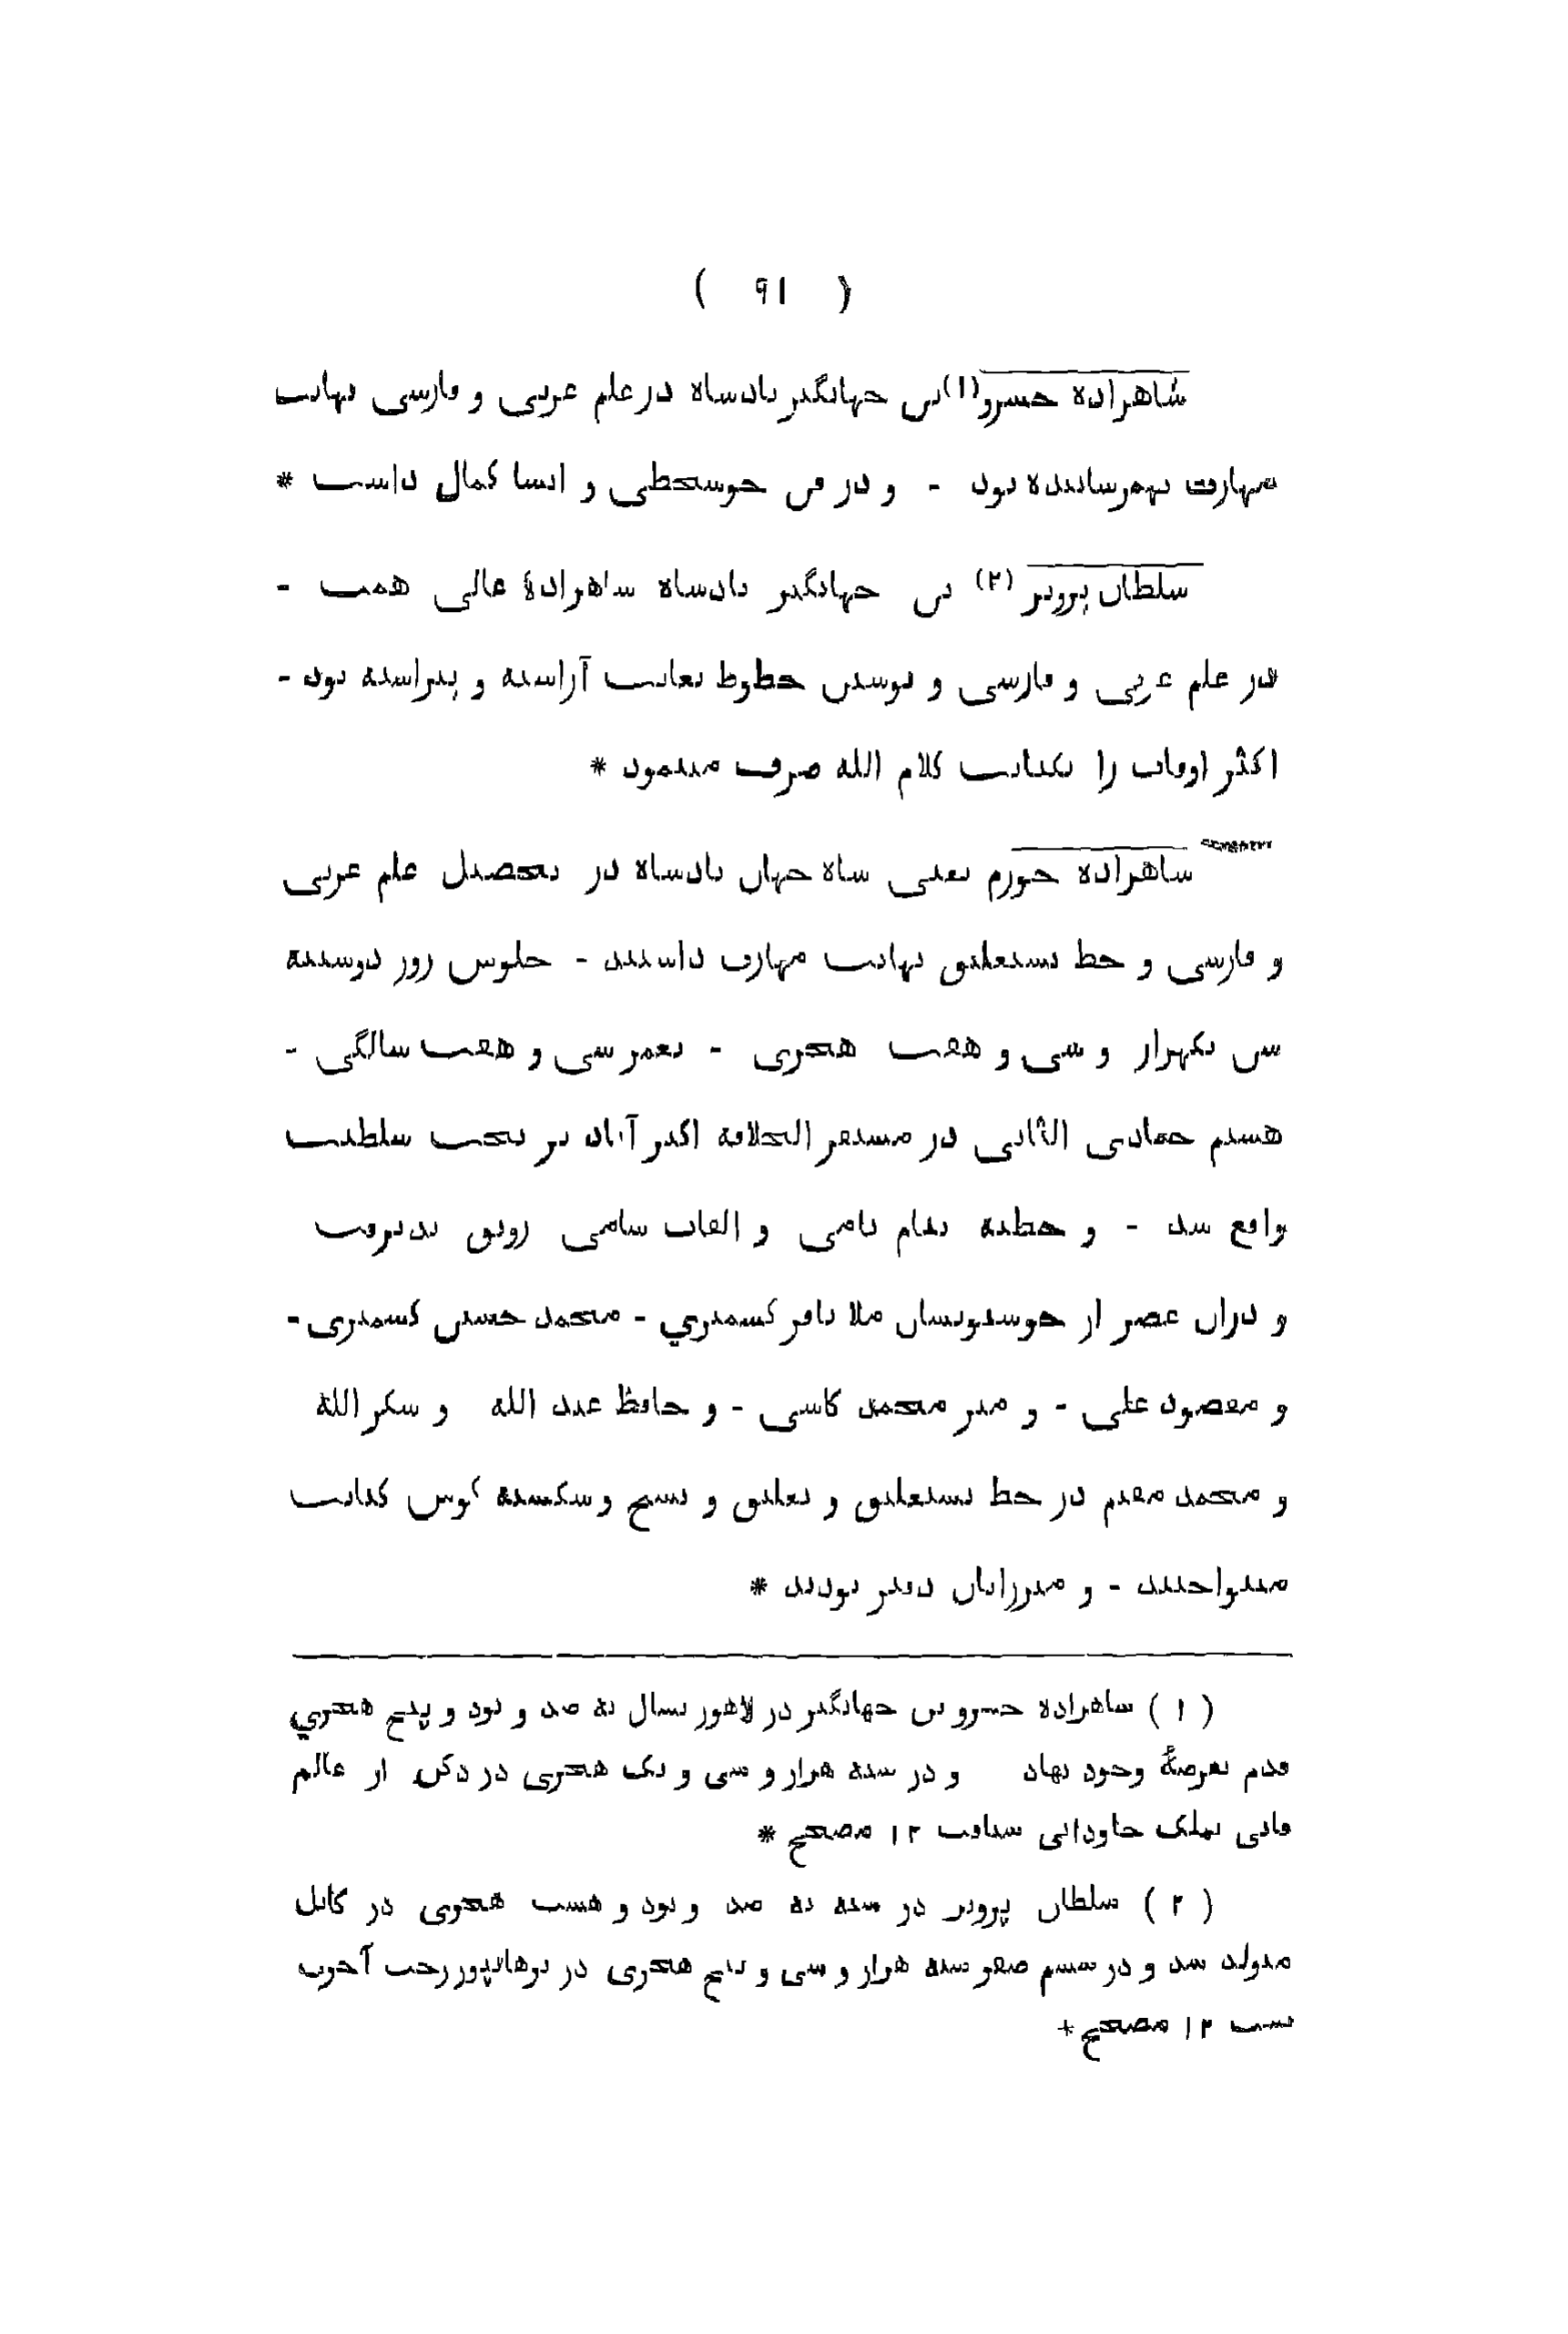 ( ۹۱ )
شاهزاده خسرو(۱) بن جهانگیر بادشاه در علم عربی و فارسی نهایت
مهارت بهمرسانیده بود - و در فن خوشخطی و انشا کمال داشت *
سلطان پرویز (۲) بن جهانگیر بادشاه شاهزادهٔ عالی همت -
در علم عربی و فارسی و نوشتن خطوط بغایت آراسته و پیراسته بود -
اکثر اوقات را بکتابت کلام الله صرف مینمود *
شاهزاده خورم یعنی شاه جهان بادشاه در تحصیل علم عربی
و فارسی و خط نستعلیق نهایت مهارت داشتند - جلوس روز دوشنبه
سن یکهزار و سی و هفت هجری - بعمر سی و هفت سالگی -
هشتم جمادی الثانی در مستقر الخلافه اکبر آباد بر تخت سلطنت
واقع شد - و خطبه بنام نامی و القاب سامی رونق پذیرفت
و دران عصر از خوشنویسان ملا باقر کشمیري - محمد حسین کشمیری -
و مقصود علی - و میر محمد کاشی - و حافظ عبد الله و شکر الله
و محمد مقیم در خط نستعلیق و تعلیق و نسخ و شکسته کوس کتابت
مینواختند - و میرزایان دفتر بودند *
( ۱ ) شاهزاده خسرو بن جهانگیر در لاهور بسال نه صد و نود و پنج هجري
قدم بعرصهٔ وجود نهاد و در سنه هزار و سی و یک هجری در دکن از عالم
فانی بملک جاودانی شتافت ۱۲ مصحح *
( ۲ ) سلطان پرویز در سنه نه صد و نود و هشت هجری در کابل
متولد شد و در ششم صفر سنه هزار و سی و پنج هجری در برهانپور رخت آخرت
بست ۱۲ مصحح *